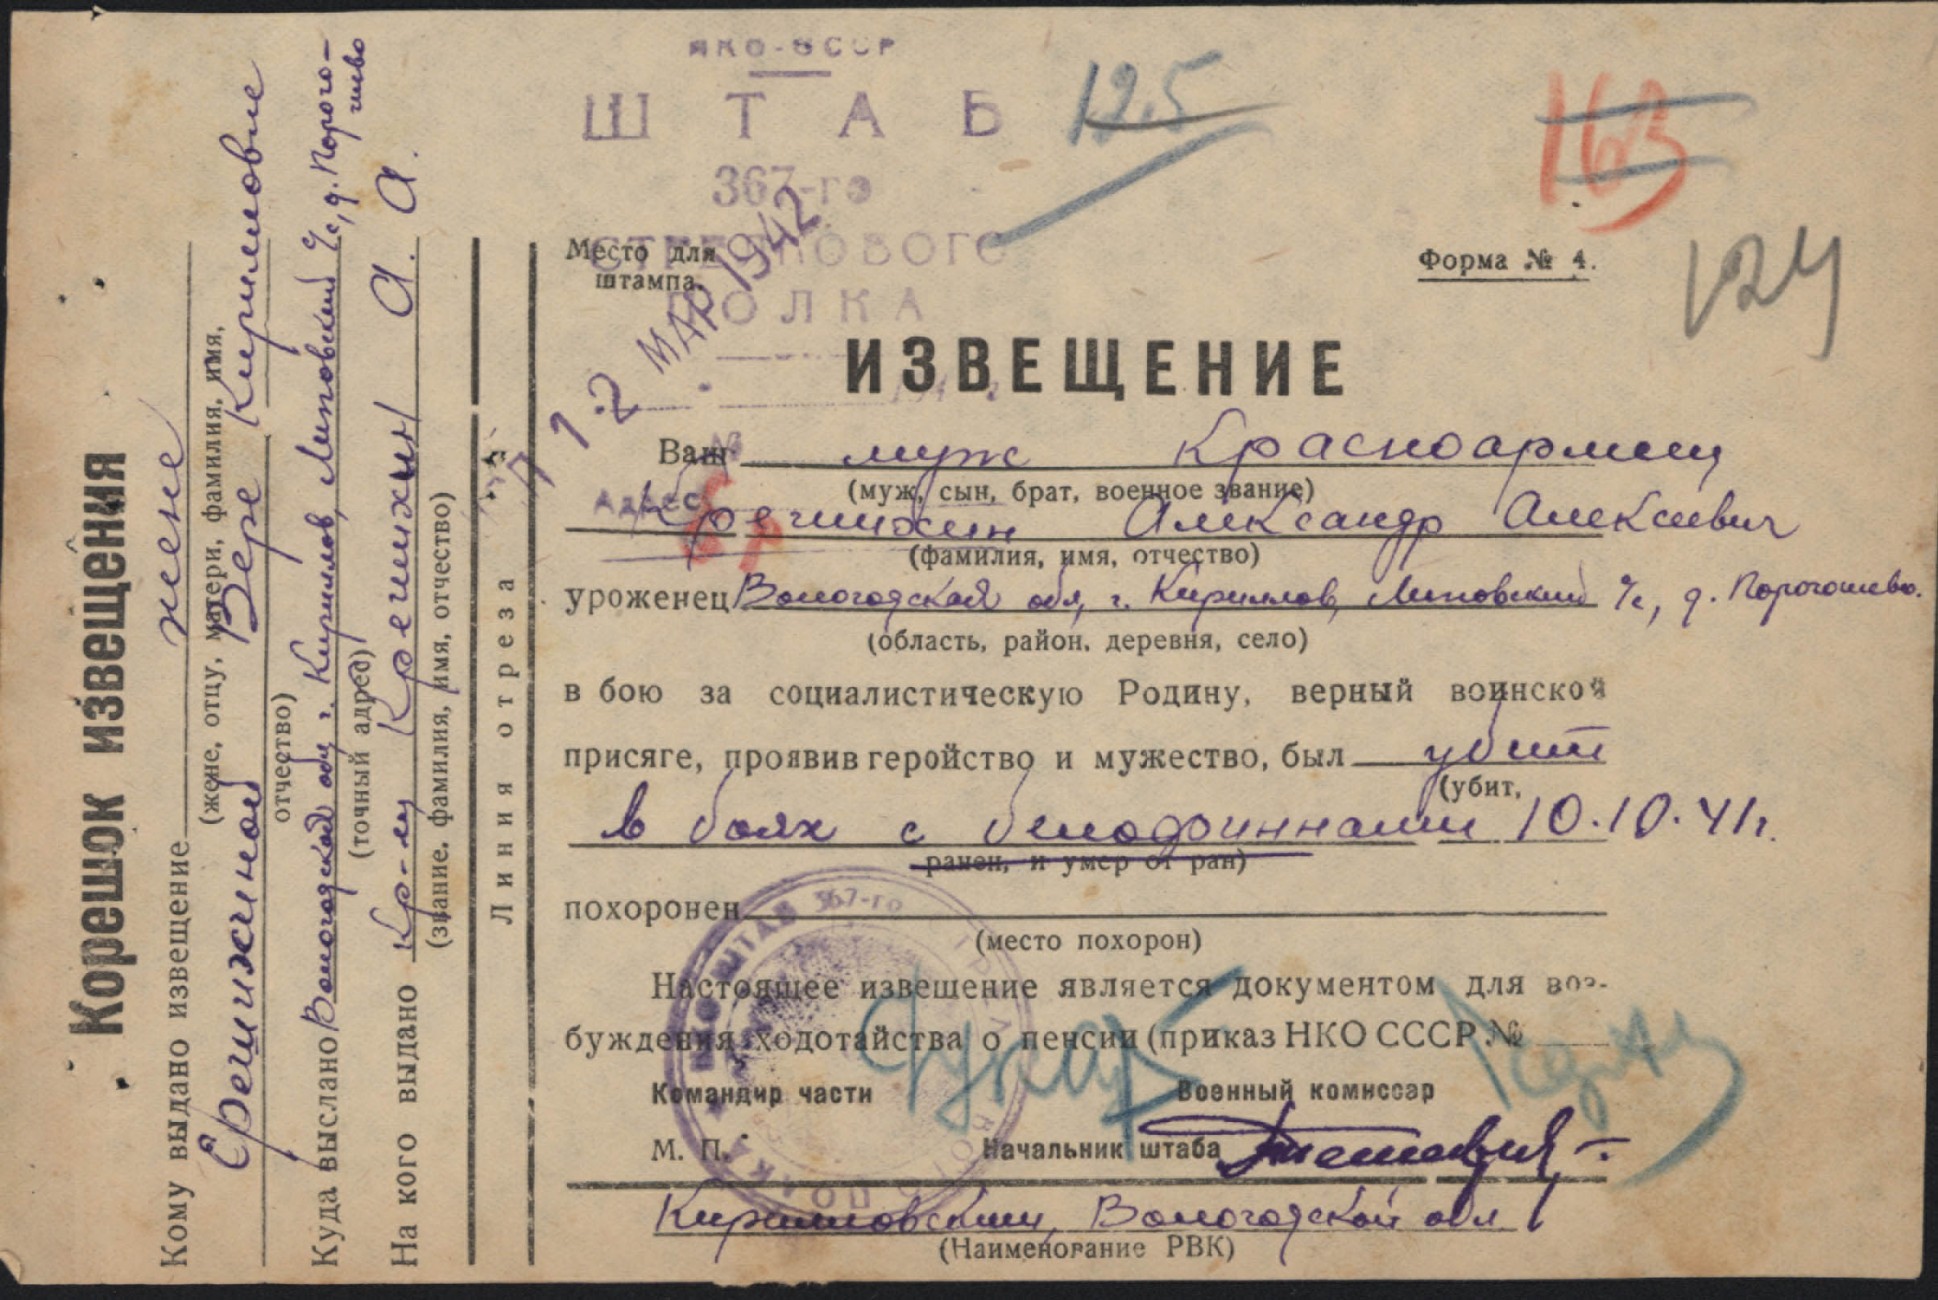 Корешок извещения
Кому выдано извещение жене
(жене, отцу, матери, фамилия, имя,
Вере Кирилловне
отчество)
Куда выслано Вологодская обл г. Кириллов, Липовский с/с, д. Порого-
шево
(точный адрес)
На кого выдано кр-ец А. А.
(звание, фамилия, имя, отчество)
Линия отреза
НКО-СССР
ШТАБ
367-го
СТРЕЛКОВОГО
ПОЛКА
12 МАР 1942
№
Адрес
125
163
124
Место для
штампа.
Форма № 4.
ИЗВЕЩЕНИЕ
Ваш муж Красноармеец
(муж, сын, брат, военное звание)
Александр Алексеевич
(фамилия, имя, отчество)
уроженец Вологодская обл, г. Кириллов, Липовский с/с, д. Порогошево.
(область, район, деревня, село)
в бою за социалистическую Родину, верный воинской
присяге, проявив геройство и мужество, был убит
(убит,
в боях с белофиннами 10.10.41г.
ранен, и умер от ран)
похоронен
(место похорон)
Настоящее извещение является документом для воз-
буждения ходотайства о пенсии (приказ НКО СССР №
Командир части Военный комиссар
М. П. Начальник штаба
Кирилловский, Вологодской обл
(Наименование РВК)